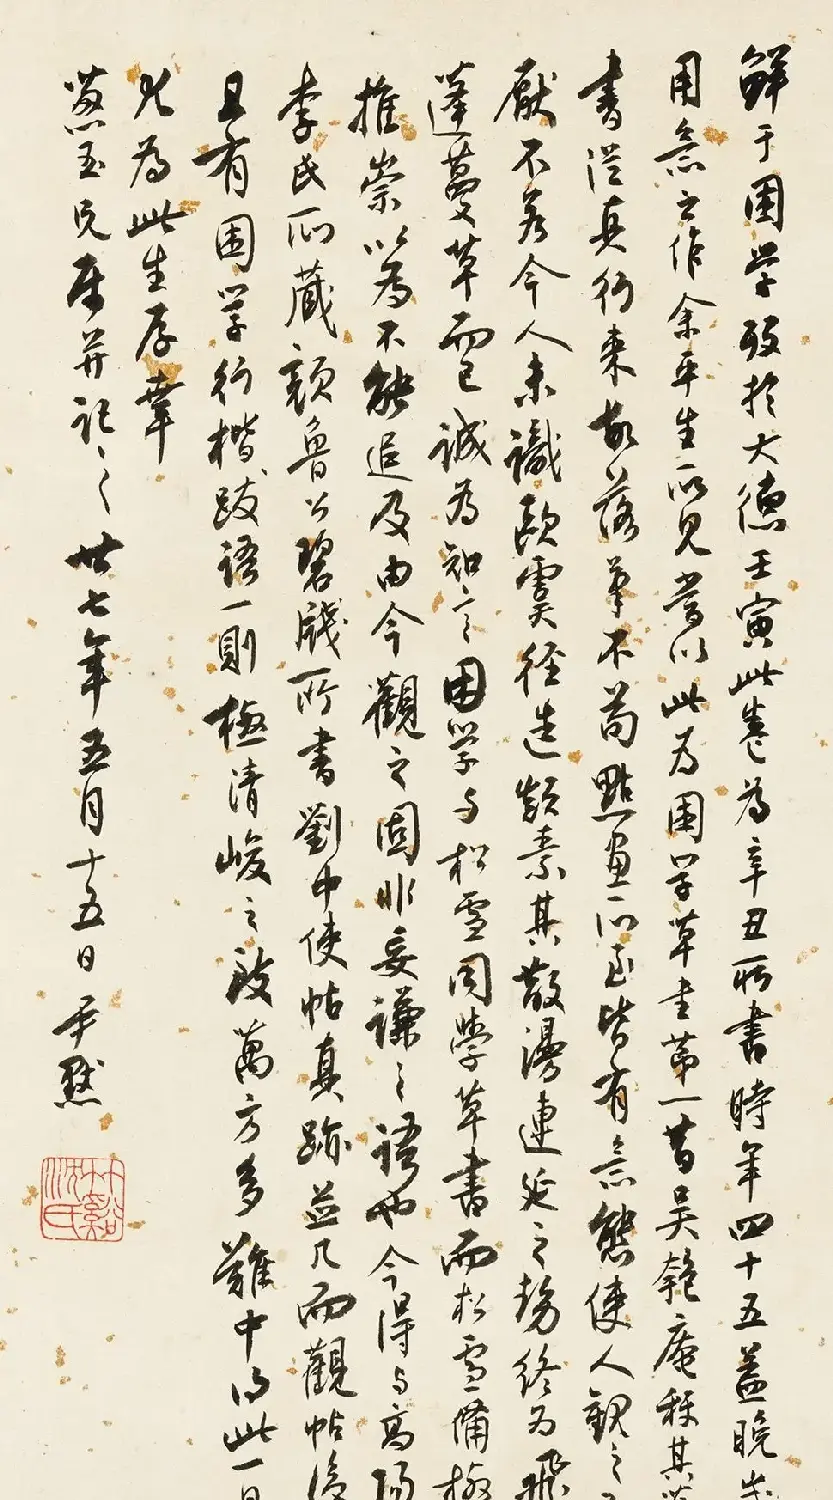 鮮于困學歿於大德壬寅此卷為辛丑所書時年四十五蓋晚年
用意之作余平生所見當以此為困學草書第一昔吳匏庵稱其草
書從真行來故落筆不苟點畫所至皆有意態使人觀之不
厭不若今人未識歐虞徑造顛素其散漫連延之勢終為飛
蓬蔓草而已誠為知言困學與松雪同學草書而松雪備極
推崇以為不能追及由今觀之固非妄謙之語也今得與高陽
李氏所藏顏魯公碧牋所書劉中使帖真跡並几而觀帖後
且有困學行楷跋語一則極清峻之致萬方多難中得此一日
以為此生厚幸
蔥玉兄屬并記之 卅七年五月十五日 尹默
竹谿沈氏